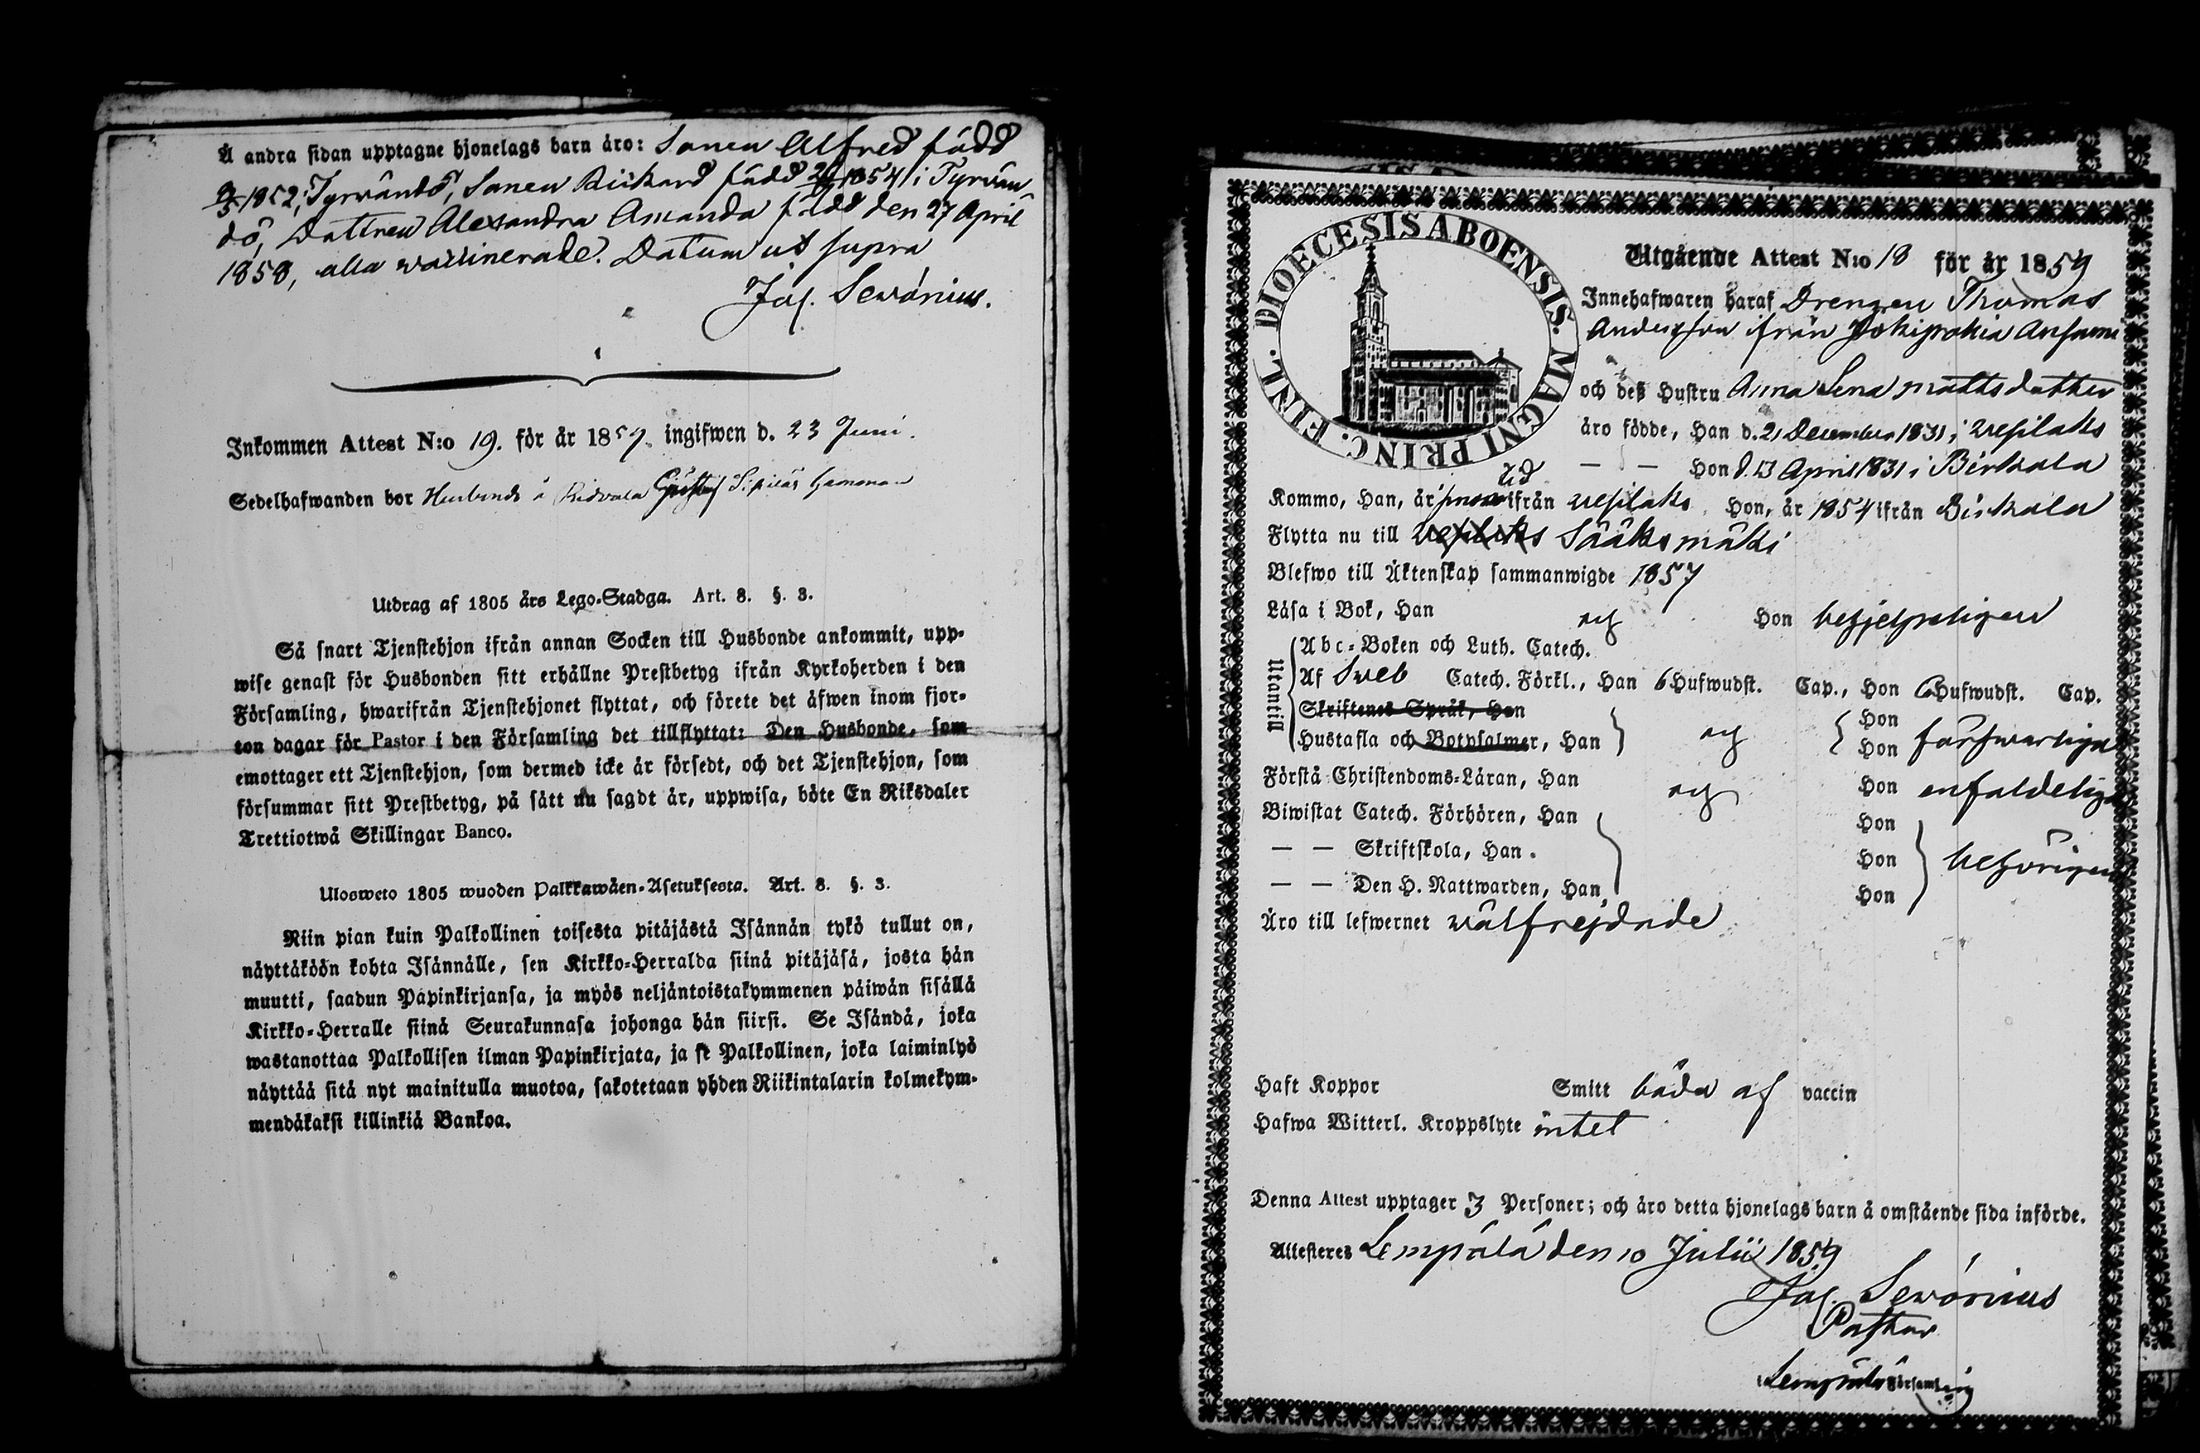 Å andra sidan upptagne hjonelags barn äro: Sonen Alfred född
1852, i Tyrvändö, Sonen Rickard född 1854 i Tyrvän-
dö, Dottren Alexandra Amanda född den 27 April
1858, alla vaccinerade. Datum ut supra
Jos. Sevónius.
Inkommen Attest N:o 19. för år 1859 ingifwen d. 23 Juni.
Sedelhafwanden bor å Ridvala Sipilä hemman
Utdrag af 1805 års Lego-Stadga. Art. 8. §. 3.
Så snart Tjenstehjon ifrån annan Socken till Husbonde ankommit, upp-
wise genast för Husbonden sitt erhållne Prestbetyg ifrån Kyrkoherden i den
Församling, hwarifrån Tjenstehjonet flyttat, och förete det äfwen inom fjor-
ton dagar för Pastor i den Församling det tillflyttat: Den Husbonde, som
emottager ett Tjenstehjon, som dermed icke är försedt, och det Tjenstehjon, som
försummar sitt Prestbetyg, på sätt nu sagdt är, uppwisa, böte En Riksdaler
Trettiotwå Skillingar Banco.
Ulosweto 1805 wuoden Palkkawäen-Asetuksesta. Art. 8. §. 3.
Niin pian kuin Palkollinen toisesta pitäjästä Isännän tykö tullut on,
näyttäköön kohta Isännälle, sen Kirkko-Herralda siinä pitäjäsä, josta hän
muutti, saadun Papinkirjansa, ja myös neljäntoistakymmenen päiwän sisällä
Kirkko-Herralle siinä Seurakunnasa johonga hän siirsi. Se Isändä, joka
wastanottaa Palkollisen ilman Papinkirjata, ja se Palkollinen, joka laiminlyö
näyttää sitä nyt mainitulla muotoa, sakotetaan yhden Riikintalarin kolmekym-
mendäkaksi killinkiä Bankoa.
DIOECESIS ABOENSIS. MAGNI PRINC. FINL.
Utgående Attest N:o 18 för år 1859
Innehafwaren häraf Drengen Thomas
Andersson ifrån Jokipohia
och deß Hustru Anna Lena Mattsdotter
äro födde, Han d. 21 December 1831 i Vesilaks
— — Hon d. 13 April 1831 i Birkala
Kommo, Han, år ifrån Vesilaks, Hon, år 1854 ifrån Birkala
Flytta nu till Vesilaks Sääksmäki
Blefwo till Äktenskap sammanwigde 1857
Läsa i Bok, Han og Hon behjelpeligen
Utantill
Abc-Boken och Luth. Catech.
Af Sveb Catech. Förkl., Han 6 Hufwudst. Cap., Hon 6 Hufwudst. Cap.
Skriftenes Språk, Han Hon
Hustafla och Botpsalmer, Han og Hon försvarliga
Förstå Christendoms-Läran, Han og Hon enfaldeliga
Biwistat Catech. Förhören, Han Hon
— — Skriftskola, Han Hon behörigen
— — Den H. Nattwarden, Han Hon
Äro till lefwernet välfrejdade
Haft Koppor Smitt båda af vaccin
Hafwa Witterl. Kroppslyte intet
Denna Attest upptager 3 Personer; och äro detta hjonelags barn å omstående sida införde.
Attesteres Lempälä den 10 Julii 1859
Jos. Sevónius
Pastor
i Lempälä Församling